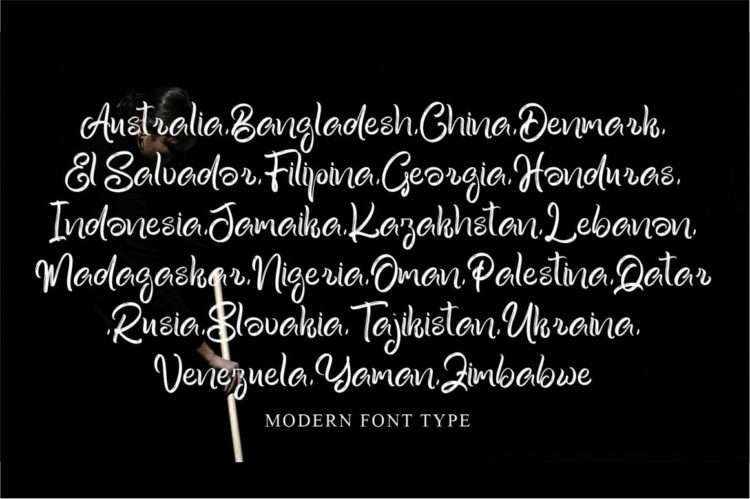 Australia,Bangladesh,China,Denmark,
El Salvador,Filipina,Georgia,Honduras,
Indonesia,Jamaika,Kazakhstan,Lebanon,
Madagaskar,Nigeria,Oman,Palestina,Qatar
,Rusia,Slovakia, Tajikistan,Ukraina,
Venezuela,Yaman,Zimbabwe
MODERN FONT TYPE